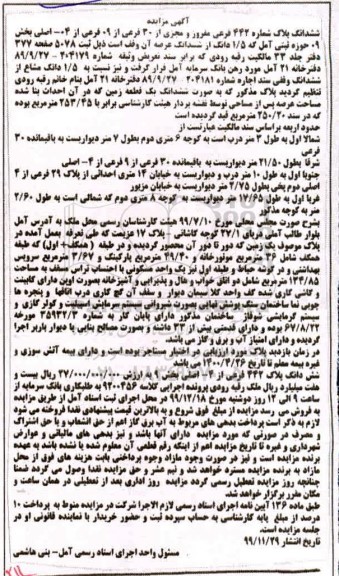 آگهی مزایده
ششدانگ پلاک شماره ۴۴۲ فرعی مفروز و مجزی از ۳۰ فرعی از ۰۹ فرعی از ۰۴- اصلی بخش
۰۹ حوزه ثبتی آمل که ۱/۵ دانگ از ششدانگ عرصه آن وقف است ذیل ثبت ۵۰۷۸ صفحه ۳۷۷
دفتر جلد ۳۳ مالکیت رقیه رودی که برابر سند تعریض وثیقه ۲۰۴۱۷۹ – ۸۹/۹/۲۷
دفترخانه ۲۱ آمل مورد رهن بانک سرمایه آمل قرار گرفت و نیز نسبت به ۱/۵ دانگ مشاع از
ششدانگ وقفی سند اجاره شماره ۲۰۴۱۸۱- ۸۹/۹/۲۷ دفترخانه ۲۱ آمل بنام خانم رقیه رودی
تنظیم گردید پلاک مذکور که به صورت ششدانگ یک قطعه زمین که در آن احداث بنا شده
مساحت عرصه پس از مساحی توسط نقشه بردار هیئت کارشناسی برابر با ۲۵۳/۴۵ مترمربع بوده
که در سند ۲۵۰/۲۰ مترمربع قید گردیده است
حدود اربعه براساس سند مالکیت عبارتست از
شمالا اول به طول ۳ متر درب است به کوچه ۶ متری دوم بطول ۷ متر دیواریست به باقیمانده ۳۰
فرعی
شرقا بطول ۲۱/۵۰ متر دیواریست به باقیمانده ۳۰ فرعی از ۹ فرعی از ۴- اصلی
جنوبا اول به طول ۱۰ متر درب و دیواریست به خیابان ۱۴ متری احداثی از پلاک ۲۹ فرعی از ۴
اصلی دوم پخی بطول ۲/۷۵ متر دیواریست به خیابان مزبور
غربا اول به طول ۱۷/۶۵ متر دیواریست به کوچه ۸ متری دوم که شمالی است به طول ۲/۶۰
متر به کوچه مذکور
بشرح صورت مجلس محلی مورخ ۹۹/۷/۱۰ هیئت کارشناسان رسمی محل ملک به آدرس آمل
بلوار طالب آملی دریای ۲۷/۱ کوچه کاشانی – پلاک ۱۷ عزیمت که طی تعرفه بعمل آمده در
پلاک موصوف یک زمین که دور تا دور آن محصور گردیده و در طبقه ( همکف+ اول) که طبقه
همکف شامل ۴۶ مترمربع موتورخانه و ۴۹/۴۰ مترمربع پارکینگ و ۳/۶۷ مترمربع سرویس
بهداشتی و در گوشه حیاط و طبقه اول نیز یک واحد مسکونی با احتساب تراس مسقف به مساحت
۱۳۴/۸۵ مترمربع شامل دو اتاق خواب و هال و پذیرایی و آشپزخانه بصورت اوپن دارای کابینت
و کاشی کاری شده کف واحد کلا سیمان دیوار و سقف آن گچ کاری درب اتاقها و پنجره ها
چوبی نما ساختمان سنگ پوشش نهایی بصورت شیروانی سیستم سرمایش اسپیلت و کولر گازی و
سیستم گرمایشی شوفاژ ساختمان مذکور دارای پایان کار به شماره ۳۵۹۳۲/۳ مورخه
۶۷/۸/۲۲ بوده و دارای قدمتی بیش از ۳۳ داشته و بصورت مصالح بنایی با دیوار باربر اجرا
گردیده و دارای امتیاز آب و برق و گاز می باشد.
در زمان بازدید پلاک مورد ارزیابی در اختیار مستاجر بوده است و دارای بیمه آتش سوزی و
غیره بیمه معلم تا تاریخ ۱۴۰۰/۴/۲۶ می باشد.
شش دانگ پلاک ۴۴۲ فرعی از ۰۴ اصلی بخش ۰۹ به ارزش ۲۷/۰۰۰/۰۰۰/۰۰۰ ریال بیست و
هفت میلیارد ریال ملک رقیه رودی پرونده اجرایی کلاسه ۹۲۰۰۴۵۶ به طلبکاری بانک سرمایه از
ساعت ۹ الی ۱۲ روز دوشنبه مورخ ۹۹/۱۲/۱۸ در محل اجرای ثبت اسناد آمل از طریق مزایده
به فروش می رسد مزایده از مبلغ فوق شروع و به بالاترین قیمت پیشنهادی نقدا فروخته می شود
لازم به ذکر است پرداخت بدهی های مربوط به آب برق گاز اعم از حق انشعاب و یا حق اشتراک
و مصرف در صورتی که مورد مزایده دارای آنها باشد و نیز بدهی های مالیاتی و عوارض
شهرداری و غیره تا تاریخ مزایده اعم از اینکه رقم قطعی آن معلوم شده یا نشده باشد به عهده
برنده مزایده است و نیز در صورت وجود مازاد وجوه پرداختی بابت هزینه های فوق از محل
مازاد به برنده مزایده مسترد خواهد شد و نیم عشر و حق مزایده نقدا وصول می گردد ضمنا
چنانچه روز مزایده تعطیل رسمی گردد مزایده روز اداری بعد از تعطیلی در همان ساعت و
مکان مقرر برگزار خواهد شد.
طبق ماده ۱۳۶ آیین نامه اجرای اسناد رسمی لازم الاجرا شرکت در مزایده منوط به پرداخت ۱۰
درصد از مبلغ پایه کارشناسی به حساب سپرده ثبت و حضور خریدار یا نماینده قانونی او در
جلسه مزایده است.
تاریخ انتشار ۹۹/۱۱/۲۹
مسئول واحد اجرای اسناد رسمی آمل- بنی هاشمی